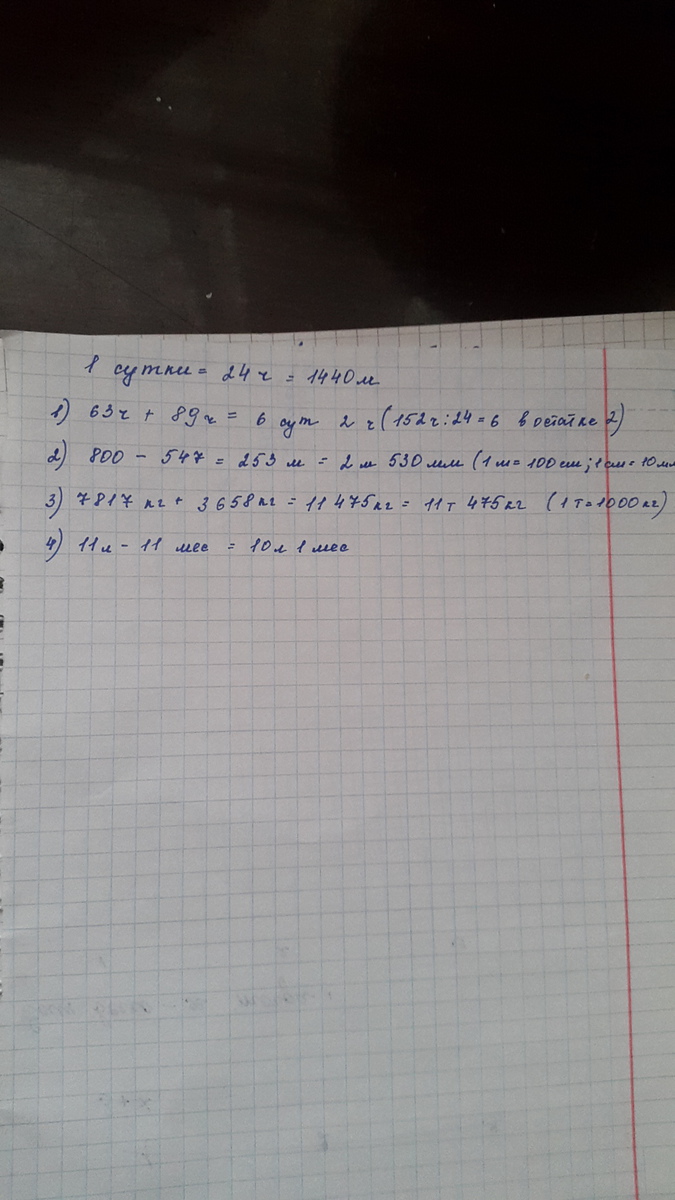 1 сутки = 24 ч = 1440 м
1) 63ч + 89ч = 6 сут 2 ч (152ч:24=6 в остатке 2)
2) 800 - 547 = 253 м = 2 м 530 мм (1 м = 100 см; 1 см = 10 мм
3) 7817 кг + 3658 кг = 11 475 кг = 11т 475 кг (1 т = 1000 кг)
4) 11л - 11 мес = 10л 1 мес